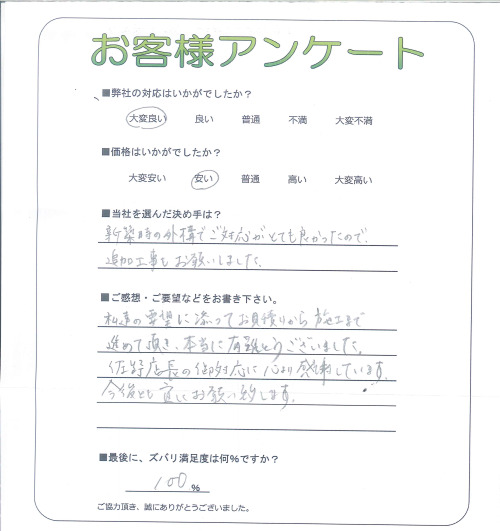 お客様アンケート
■弊社の対応はいかがでしたか？
大変良い 良い 普通 不満 大変不満
■価格はいかがでしたか？
大変安い 安い 普通 高い 大変高い
■当社を選んだ決め手は？
新築時の外構でご対応がとても良かったので、
追加工事もお願いしました。
■ご感想・ご要望などをお書き下さい。
私達の要望に添ってお見積りから施工まで
進めて頂き、本当に有難とうございました。
佐野店長の御対応に心より感謝しています。
今後とも宜しくお願い致します。
■最後に、ズバリ満足度は何％ですか？
100 ％
ご協力頂き、誠にありがとうございました。